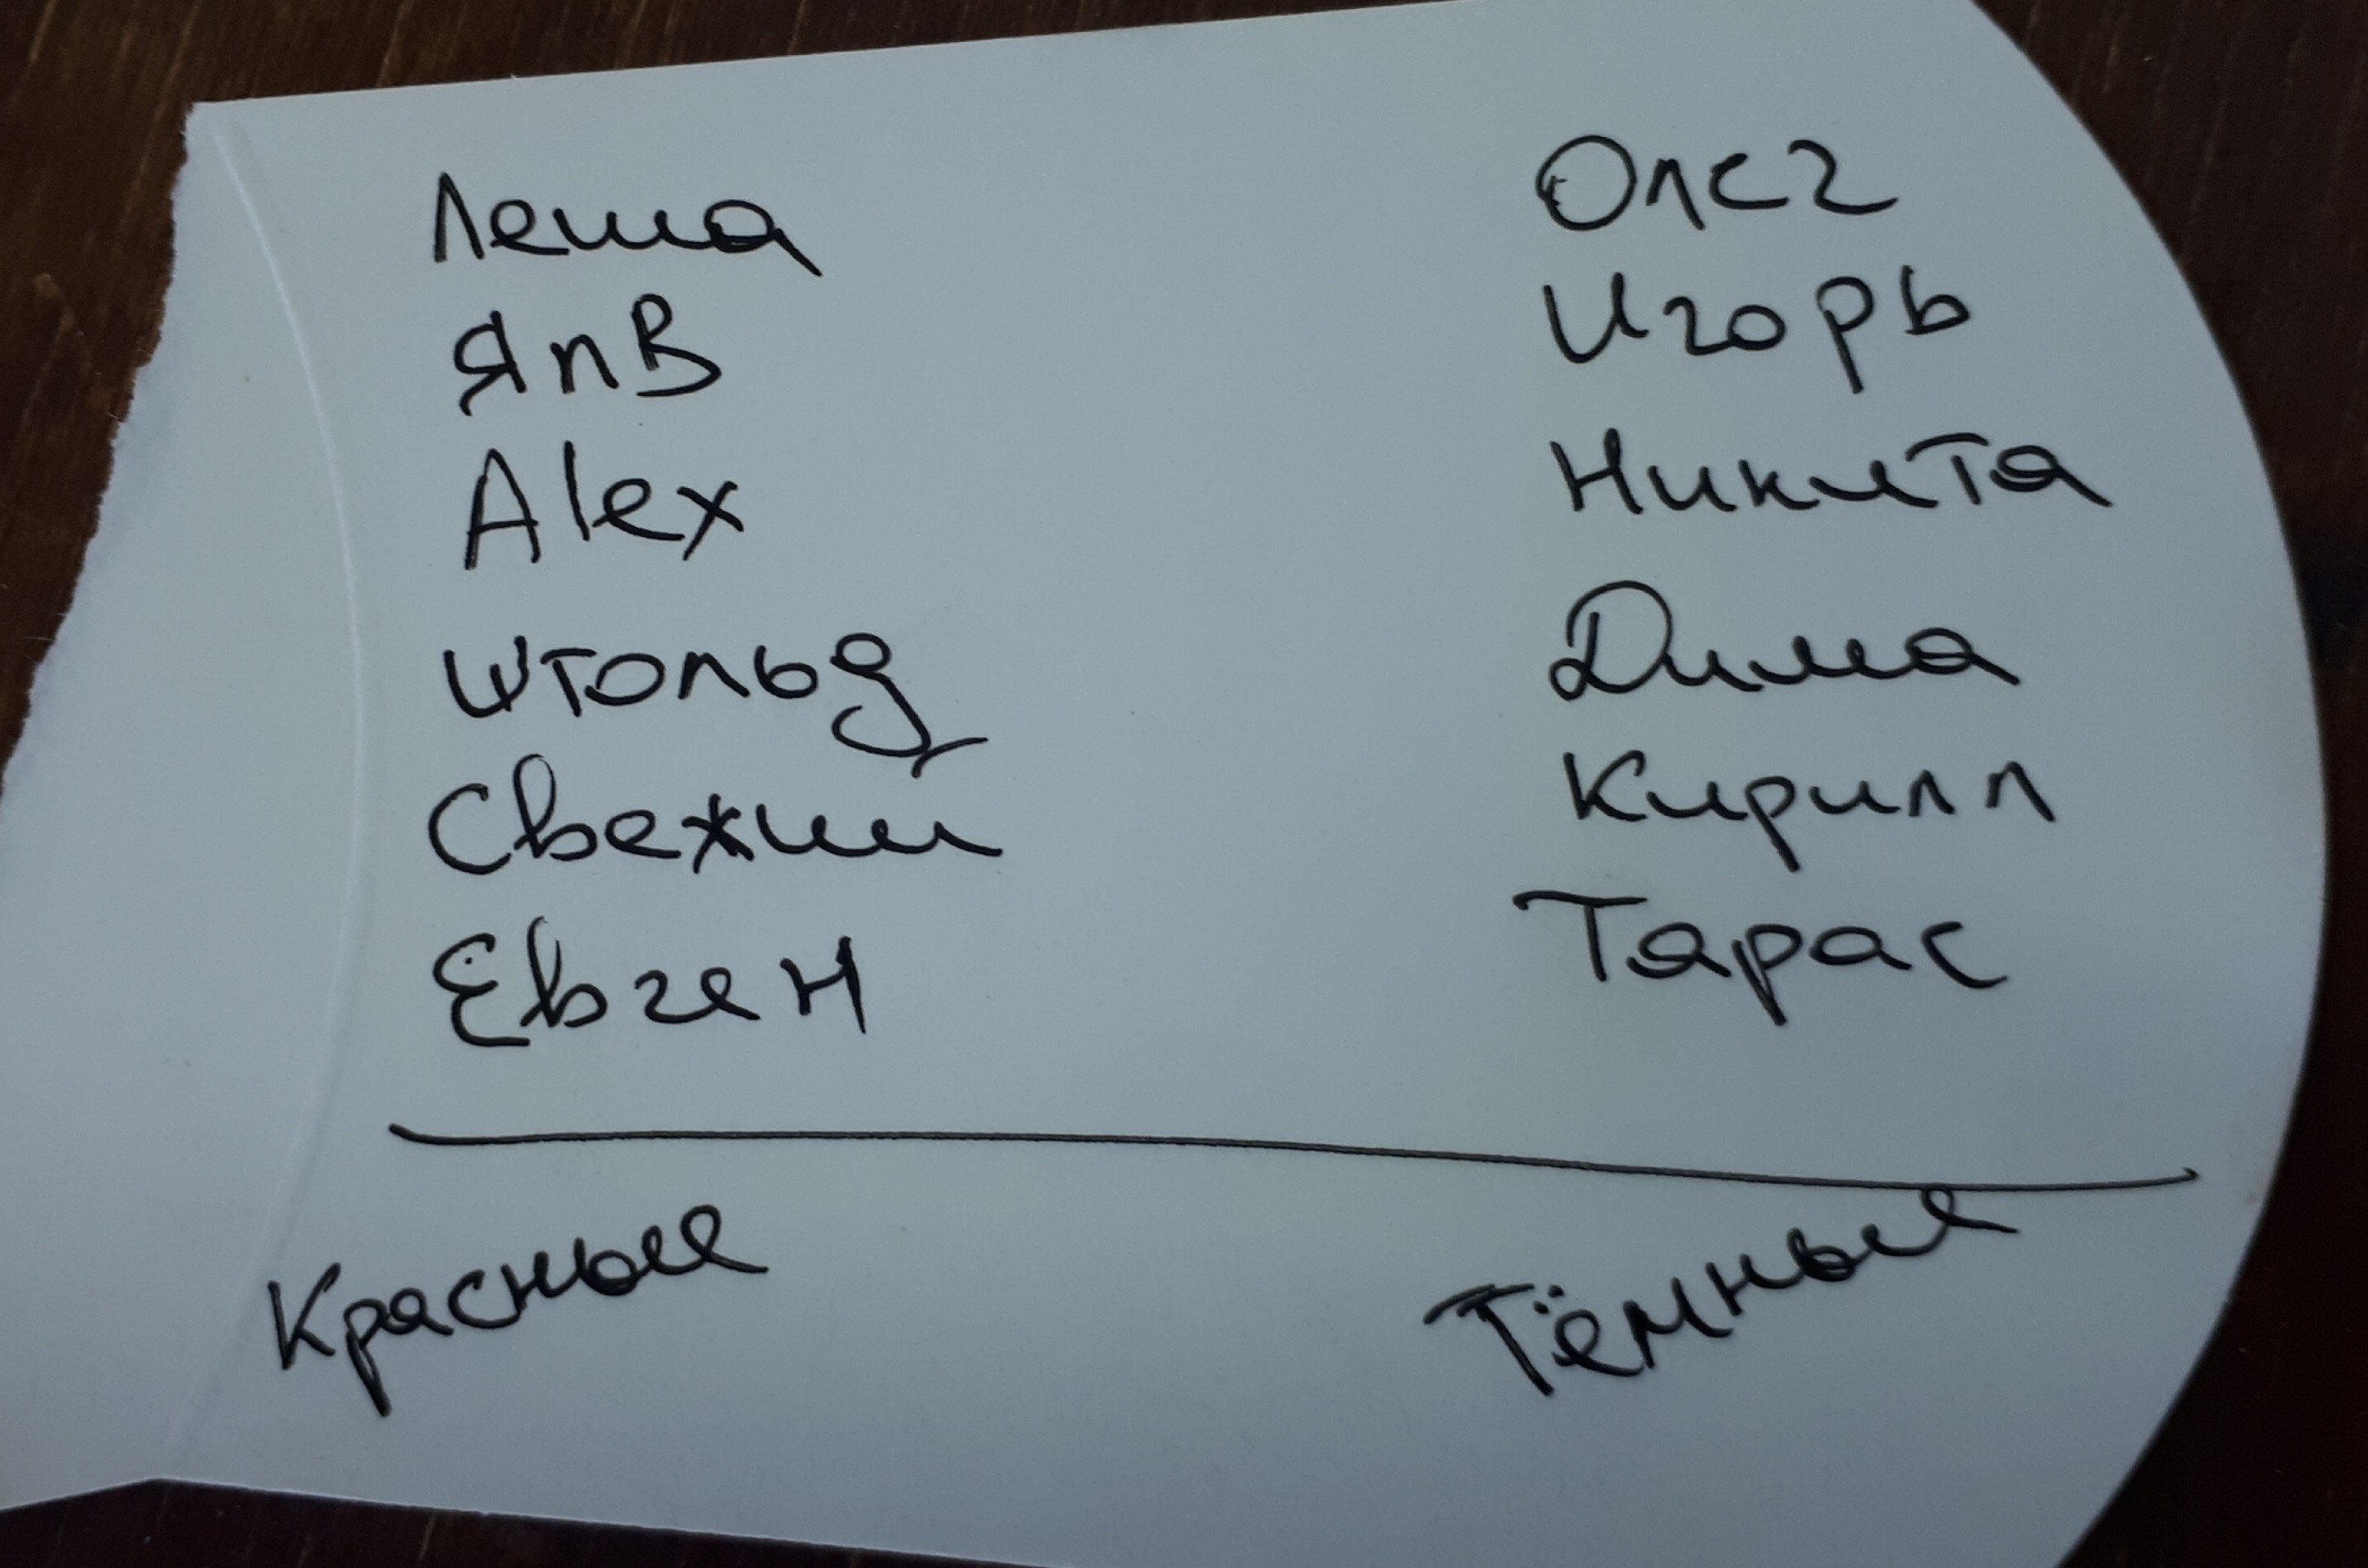 Леша
ЯпВ
Alex
Штольд
Свежии
Евген
Олег
Игорь
Никита
Дима
Кирилл
Тарас
Красные
Тёмные